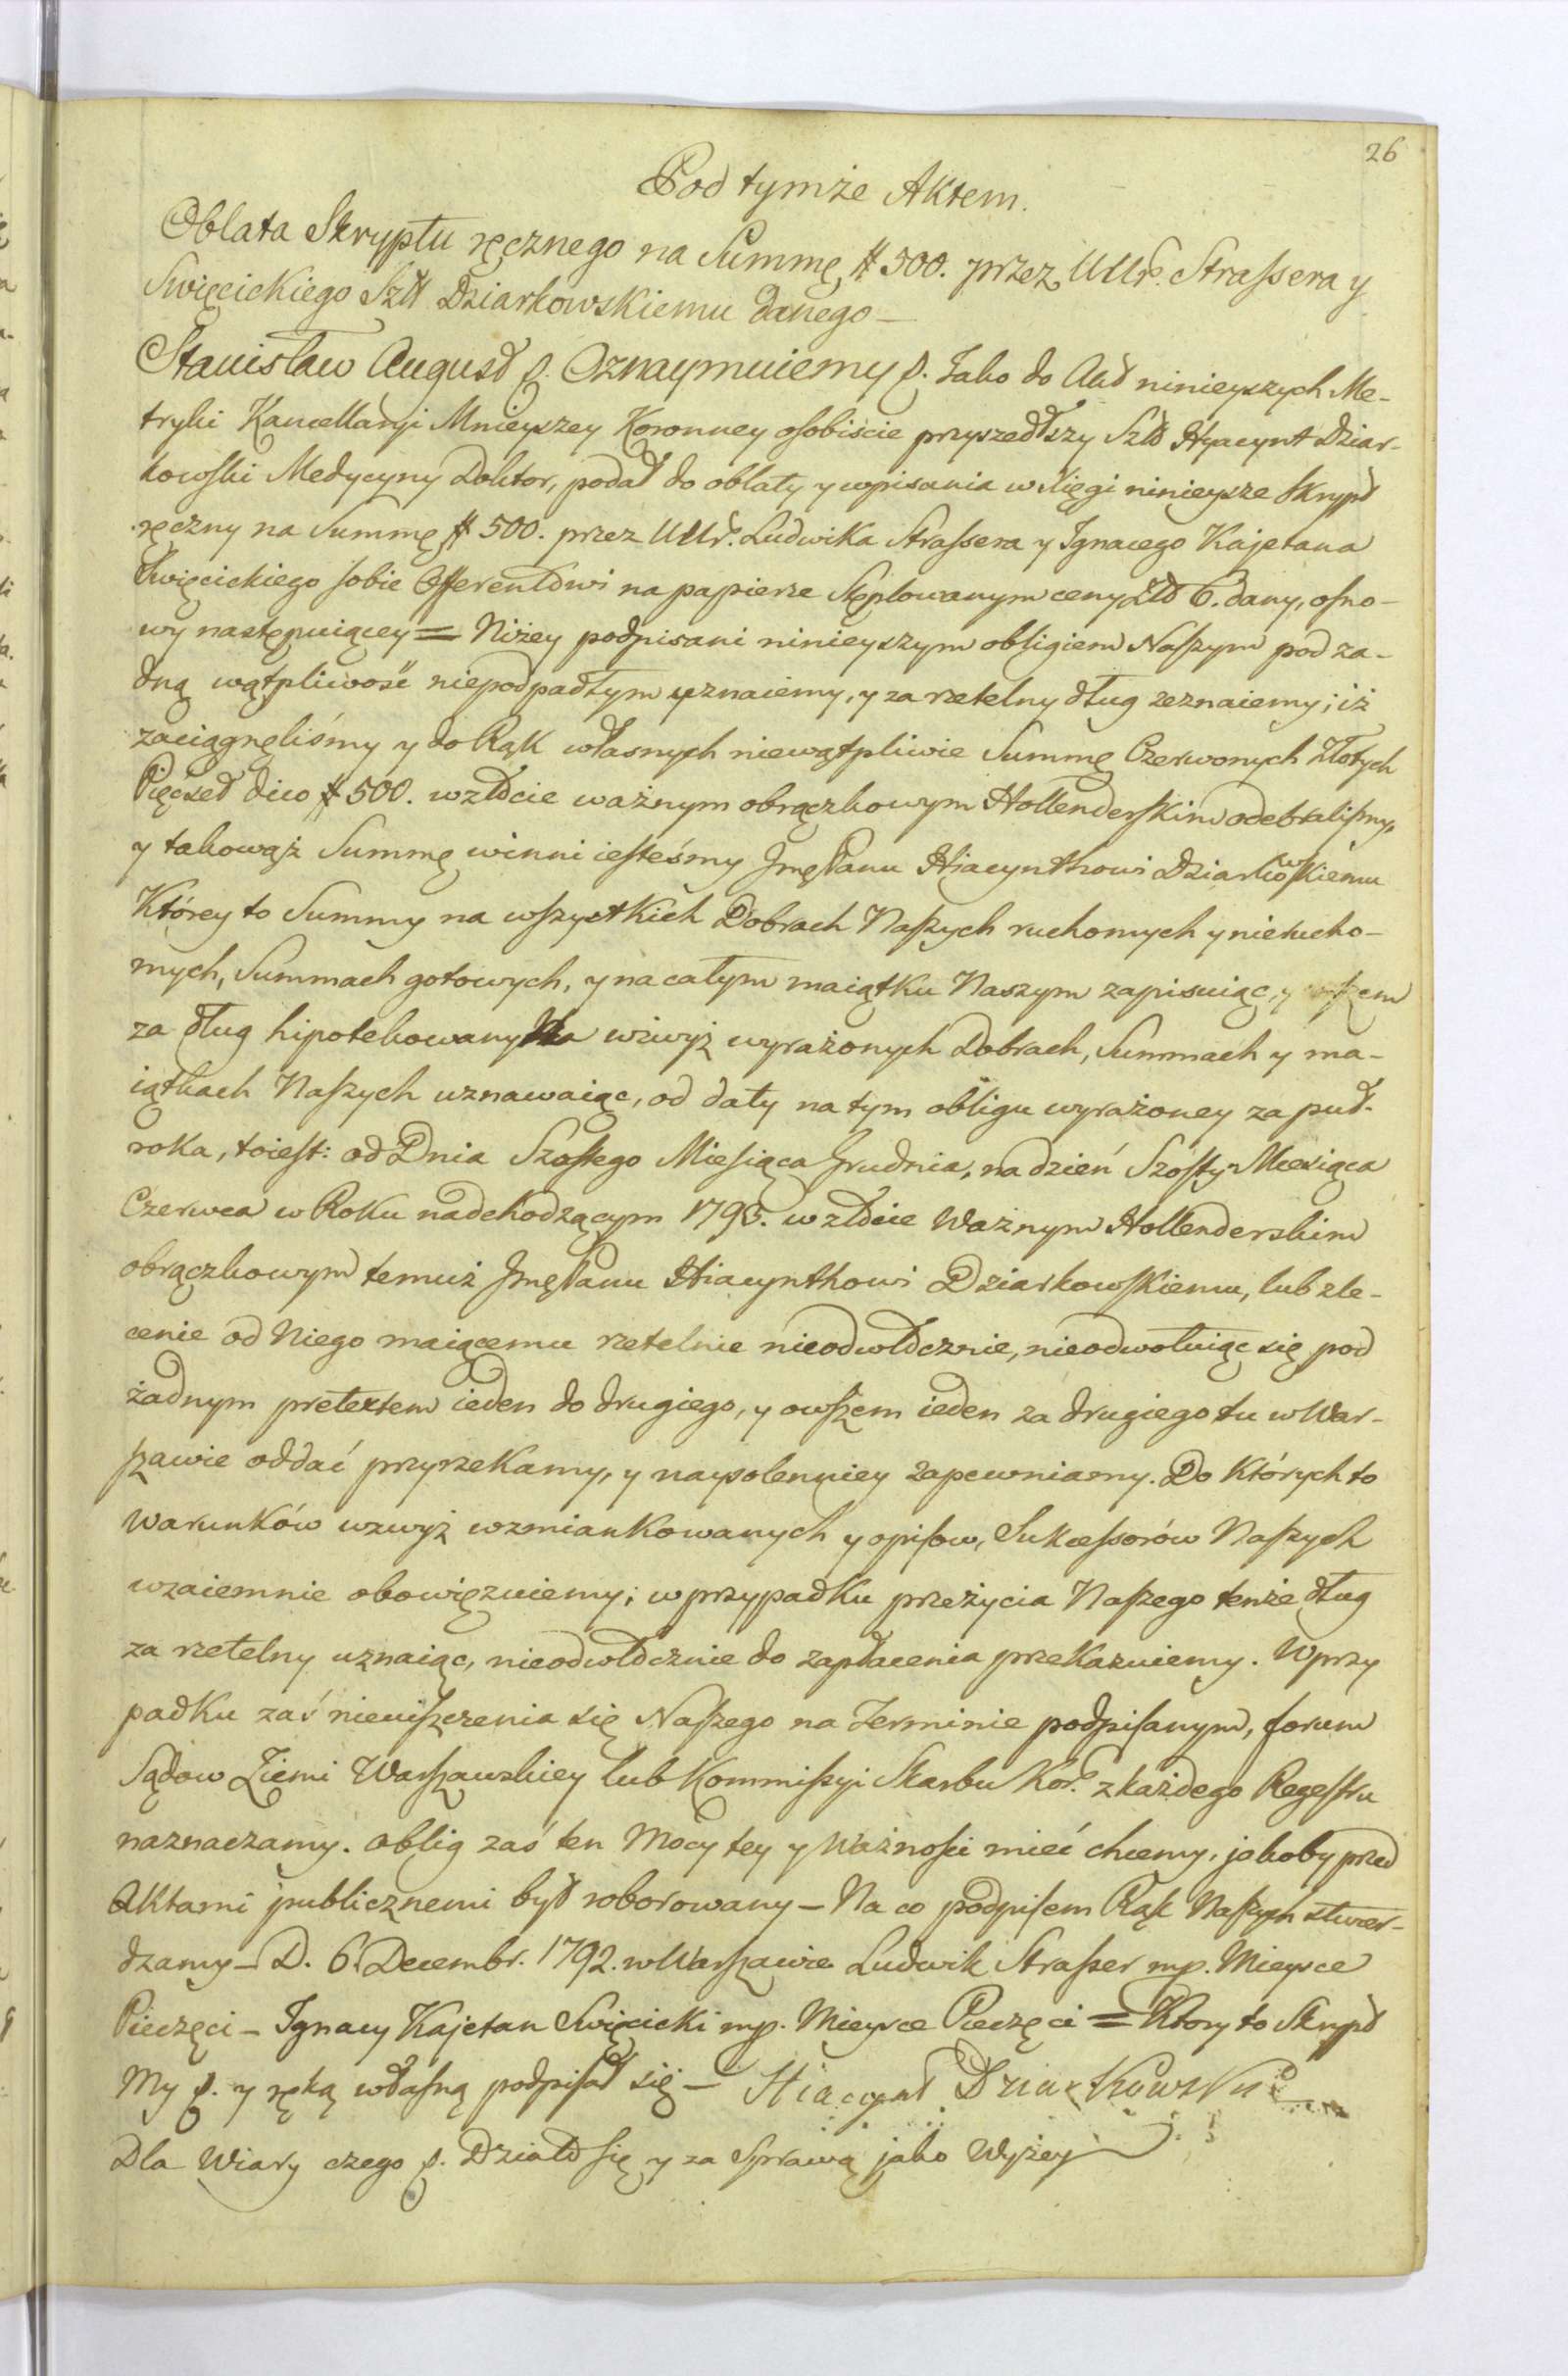 26
Pod tymże Aktem.
Oblata Skryptu ręcznego na Summę # 500. przez UUr. Straſsera y
Swięcickiego Szł Dziarkowskiemu danego —
Stanisław August p. Oznaymuiemy p. Jako do Akt ninieyszych Me-
tryki Kancellaryi Mnieyszey Koronney osobiscie przyszedłszy Szł Hyacynt Dziar-
kowſki Medycyny Doktor, podał do oblaty y wpisania w Xięgi ninieysze Skrypt
ręczny na Summę # 500. przez UUr. Ludwika Straſsera y Ignacego Kajetana
Swięcickiego sobie Offerentowi na papierze Stęplowanym ceny Zł 6. dany, osno-
wy następuiącey = Niżey podpisani ninieyszym obligiem Naſzym pod ża-
dną wątpliwość niepodpadłym uznaiemy, y za rzetelny dług zeznaiemy; iż
zaciągnęliśmy y do Rąk własnych niewątpliwie Summę Czerwonych Złotych
Pięćset dico # 500. w złocie ważnym obrączkowym Hollenderſkim odebraliſmy,
y takowąż Summę winni ieſteśmy Jmć Panu Hiacynthowi Dziarkowſkiemu
Którey to Summy na wſzystkich Dobrach Naſzych ruchomych y nierucho-
mych, Summach gotowych, y na całym maiątku Naszym zapisuiąc, y
za dług hipotekowany Na wzwyż wyrażonych Dobrach, Summach y ma-
iątkach Naſzych uznawaiąc, od daty na tym obligu wyrażoney za puł-
roka, toieſt: od Dnia Szoſtego Mieſiąca Grudnia, na dzień Szóſty Miesiąca
Czerwca w Roku nadchodzącym 1793. w złocie Ważnym Hollenderskim
obrączkowym temuż Jmć Panu Hiacynthowi Dziarkowſkiemu, lub zle-
cenie od Niego maiącemu rzetelnie nieodwłocznie, nieodwołuiąc się pod
żadnym pretextem ieden do drugiego, y owſzem ieden za drugiego tu w War-
ſzawie oddać przyrzekamy, y naysolenniey zapewniamy. Do Których to
warunków wzwyż wzmiankowanych y opiſow, Sukceſsorów Naſzych
wzaiemnie obowięzuiemy; w przypadku przeżycia Naſzego tenże dług
za rzetelny uznaiąc, nieodwłocznie do zapłacenia przekazuiemy. W przy
padku zaś nieuiſzczenia się Naſzego na Terminie podpiſanym, forum
Sądow Ziemi Warſzawskiey lub Kommiſsyi Skarbu Kor. z każdego Regeſtru
naznaczamy. Oblig zaś ten Mocy tey y Ważnoſci mieć chcemy, jakoby przed
Aktami publicznemi był roborowany — Na co podpiſem Rąk Naſzych stwier-
dzamy — D. 6. Decembr. 1792. w Warſzawie Ludwik Straſser mp. Mieysce
Pieczęci — Ignacy Kajetan Swięcicki mp. Mieysce Pieczęci = Ktory to Skrypt
My p. y ręką własną podpiſał się — Hiacynt Dziarkowski
Dla Wiary czego p. Działo się y za Sprawą jako Wyżey